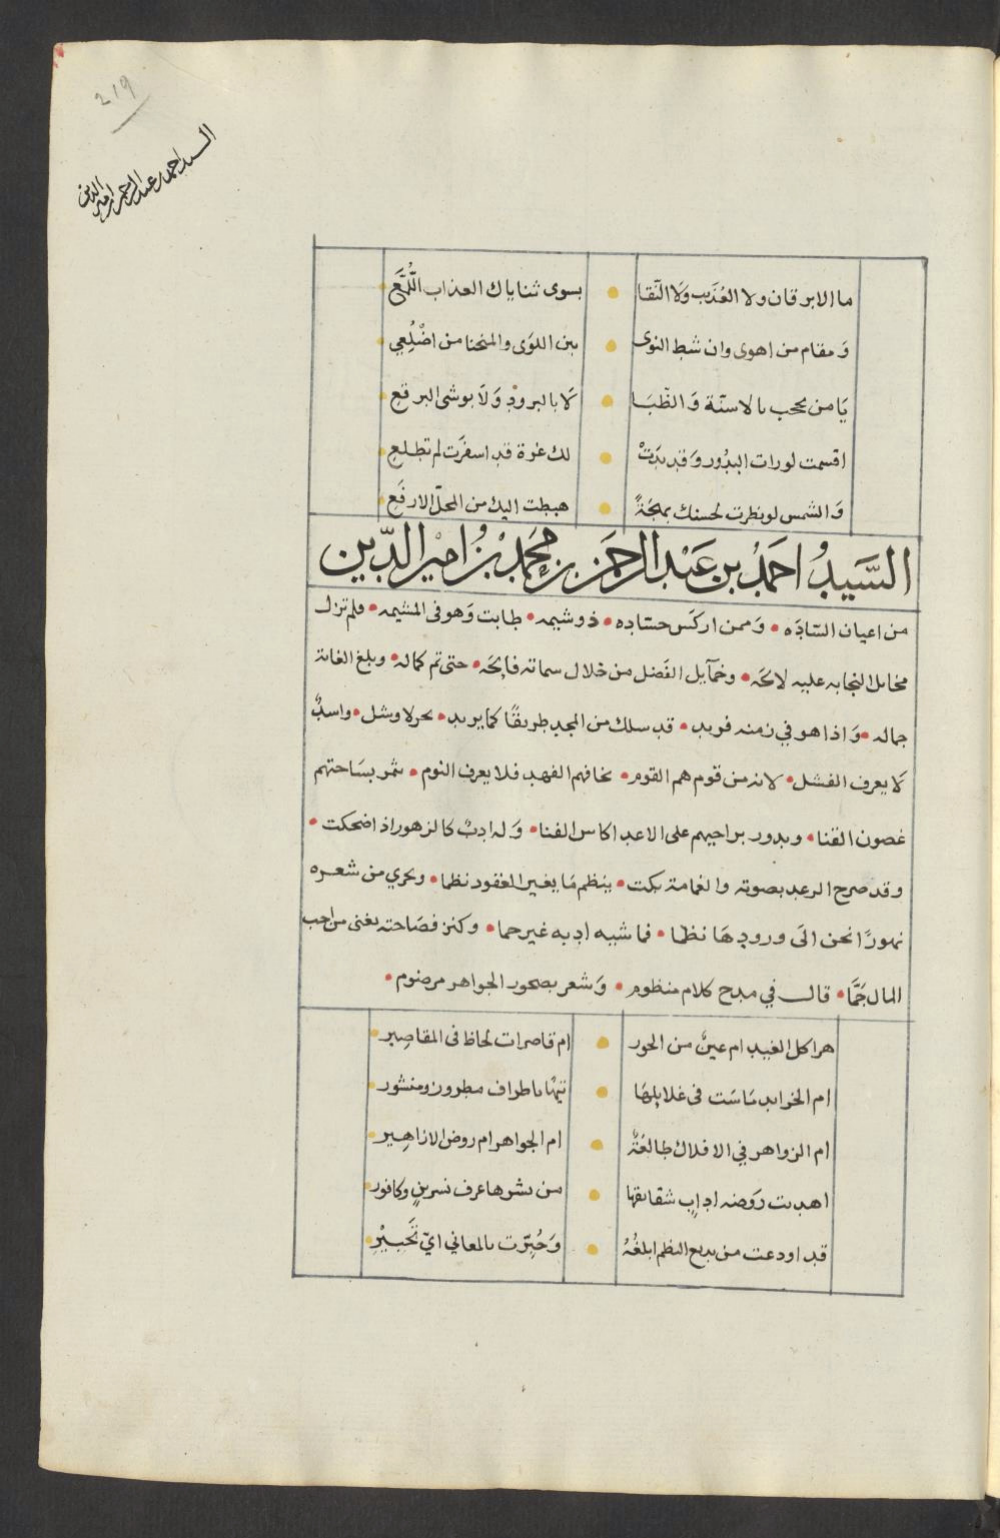 219
السيد احمد بن عبد الرحمن بن امير الدين
ما الابرقان ولا العُذَيب وَلَا النّقا • بسوى ثناياك العذاب اللُّمَّع
وَمقام من اهوى وان شط النوى • بين اللوَى والمنحنا من اضْلُعِي
يَا من يحجب بالاسنّة وَالظّبَا • لَا بالبرود وَلَا بوشى البرقع
اقسمت لو رات البدُور وَقد بدَتْ • لك غرة قد اسفرَت لم تطلع
وَالشمس لو نظرت لحسنك بهجَةً • هبطت اليك من المحلّ الارفَع
السَّيدُ احمَدُ بن عَبْد الرحمَن بن محَمدْ بنُ اميْر الدّين
من اعيان السّادَه • وَممن اركسَ حسّاده • ذو شيمه • طابت وَهو فى المشيمه • فلم تزل
مخايل النجابه عليه لائحَه • وخمآيل الفَضل من خلال سماته فايحَه • حتى تم كماله • وبلغ الغاية
جماله • وَاذا هو في زمنه فريد • قد سلك من المجد طريقًا كما يريد • بحر لا وشل • واسدٌ
لَا يعرف الفشل • لانه من قوم هم القوم • يخافهم الفهد فلا يعرف النوم • تثمر بسَاحتهم
غصون القنا • ويدور براحيهم على الاعدا كاس الفنا • وَله ادبٌ كالزهور اذا ضحكت •
وقد صرح الرعد بصوته والغمامة بكت • ينظم مَا يغير العقود نظما • ويجري من شعره
نهورًا نحن الَى ورودِهَا نظما • فما شبيه ادبه غير حما • وكنز فصَاحته يغنى من احب
المال جَمَّا • قال في مدح كلام منظوم • وَشعر بصحور الجواهر مرضوم •
هراكل الغيد ام عينٌ من الحور • ام قاصرات لحاظ فى المقاصِير
ام الخرايد مَاسَت فى غلايلهَا • تيهًا باطراف مطرور ومنشور
ام الزواهر في الافلاك طالعَةٌ • ام الجواهر ام روض الازاهِير
اهديت روَضه ادابٍ شقائقها • من نشرها عرف نسرينٍ وكافور
قد اودعت من بديع النظم ابلغُهُ • وَحُبِّرَت بالمعاني ايّ تَحبيْرِ